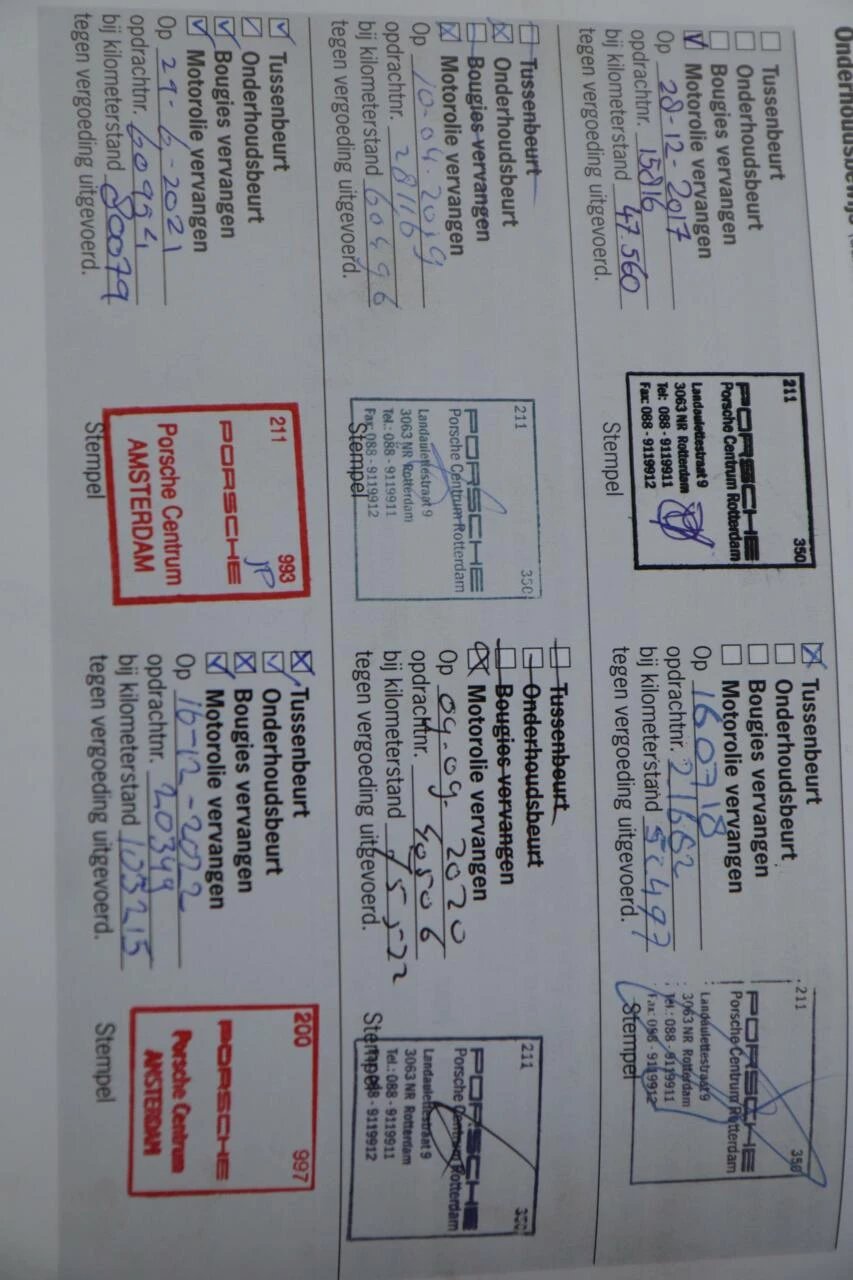 Onderhoudsbewijs
Tussenbeurt
Onderhoudsbeurt
Bougies vervangen
Motorolie vervangen
Op 28-12-2017
opdrachtnr. 15816
bij kilometerstand 47.560
tegen vergoeding uitgevoerd.
211 350
PORSCHE
Porsche Centrum Rotterdam
Landaulettestraat 9
3063 NR Rotterdam
Tel: 088 - 9119911
Fax: 088 - 9119912
Stempel
Tussenbeurt
Onderhoudsbeurt
Bougies vervangen
Motorolie vervangen
Op 160718
opdrachtnr. 21662
bij kilometerstand 52497
tegen vergoeding uitgevoerd.
211 350
PORSCHE
Porsche Centrum Rotterdam
Landaulettestraat 9
3063 NR Rotterdam
Tel.: 088 - 9119911
Fax: 088 - 9119912
Stempel
Tussenbeurt
Onderhoudsbeurt
Bougies vervangen
Motorolie vervangen
Op 10-04-2019
opdrachtnr. 28116
bij kilometerstand 60496
tegen vergoeding uitgevoerd.
211 350
PORSCHE
Porsche Centrum Rotterdam
Landaulettestraat 9
3063 NR Rotterdam
Tel.: 088 - 9119911
Fax: 088 - 9119912
Stempel
Tussenbeurt
Onderhoudsbeurt
Bougies vervangen
Motorolie vervangen
Op 09.09.2020
opdrachtnr. 40506
bij kilometerstand 75522
tegen vergoeding uitgevoerd.
211 350
PORSCHE
Porsche Centrum Rotterdam
Landaulettestraat 9
3063 NR Rotterdam
Tel.: 088 - 9119911
088 - 9119912
Stempel
Tussenbeurt
Onderhoudsbeurt
Bougies vervangen
Motorolie vervangen
Op 29-6-2021
opdrachtnr. 60984
bij kilometerstand 80079
tegen vergoeding uitgevoerd.
211 993
PORSCHE JP
Porsche Centrum
AMSTERDAM
Stempel
Tussenbeurt
Onderhoudsbeurt
Bougies vervangen
Motorolie vervangen
Op 16-12-2022
opdrachtnr. 20349
bij kilometerstand 103215
tegen vergoeding uitgevoerd.
200 997
PORSCHE
Porsche Centrum
AMSTERDAM
Stempel